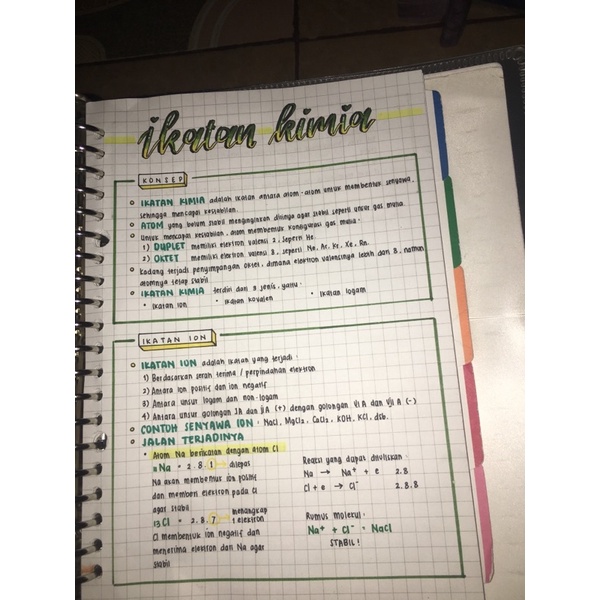 ikatan kimia
KONSEP
IKATAN KIMIA adalah ikatan antara atom-atom untuk membentuk senyawa,
sehingga mencapai kestabilan.
ATOM yang belum stabil menginginkan dirinya agar stabil seperti unsur gas mulia.
Untuk mencapai kestabilan, atom membentuk konfigurasi gas mulia.
1) DUPLET memiliki elektron valensi 2, seperti He.
2) OKTET memiliki elektron valensi 8, seperti Ne, Ar, Kr, Xe, Rn.
kadang terjadi penyimpangan oktet, dimana elektron valensinya lebih dari 8, namun
atomnya tetap stabil
IKATAN KIMIA terdiri dari 3 jenis, yaitu:
• Ikatan ion • Ikatan kovalen • Ikatan logam
IKATAN ION
IKATAN ION adalah ikatan yang terjadi:
1) Berdasarkan serah terima / perpindahan elektron
2) Antara ion positif dan ion negatif
3) Antara unsur logam dan non-logam
4) Antara unsur golongan IA dan IIA (+) dengan golongan VIA dan VIIA (-)
CONTOH SENYAWA ION : NaCl, MgCl2, CaCl2, KOH, KCl, dsb.
JALAN TERJADINYA
• Atom Na berikatan dengan atom Cl
11Na = 2.8.1 dilepas
Na akan membentuk ion positif
dan memberi elektron pada Cl
agar stabil
Cl = 2.8.7 menangkap
1 elektron
Cl membentuk ion negatif dan
menerima elektron dari Na agar
stabil
Reaksi yang dapat dituliskan:
Na → Na+ + e 2.8
Cl + e → Cl- 2.8.8
Rumus molekul:
Na+ + Cl- = NaCl
STABIL!